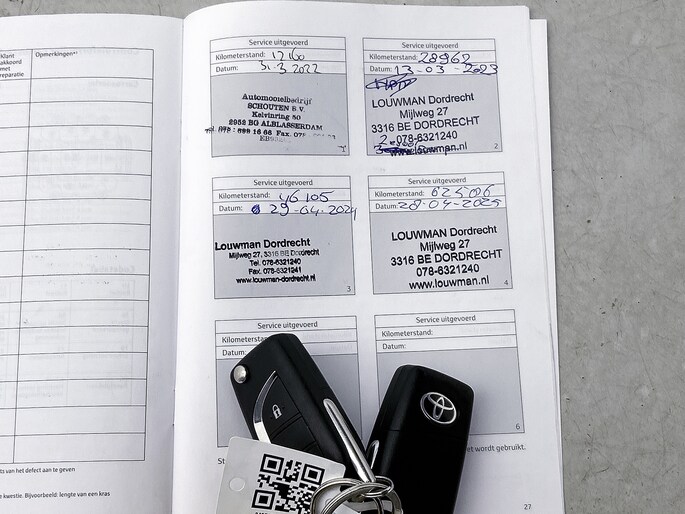 Klant
akkoord
met
reparatie
Opmerkingen*¹
Service uitgevoerd
Kilometerstand: 12160
Datum: 31.3 2022
Automobielbedrijf
SCHOUTEN B.V.
Kelvinring 50
2952 BG ALBLASSERDAM
Fax.
1
Service uitgevoerd
Kilometerstand: 28962
Datum: 13-03-2023
LOUWMAN Dordrecht
Mijlweg 27
3316 BE DORDRECHT
078-6321240
www.louwman.nl
2
Service uitgevoerd
Kilometerstand: 46105
Datum: 29-04-2024
Louwman Dordrecht
Mijlweg 27, 3316 BE Dordrecht
Tel. 078-6321240
Fax. 078-6321241
www.louwman-dordrecht.nl
3
Service uitgevoerd
Kilometerstand: 62506
Datum: 28-04-2025
LOUWMAN Dordrecht
Mijlweg 27
3316 BE DORDRECHT
078-6321240
www.louwman.nl
4
Service uitgevoerd
Kilometerstand:
Datum:
Service uitgevoerd
Kilometerstand:
Datum:
6
wordt gebruikt.
27
ts van het defect aan te geven
kwestie. Bijvoorbeeld: lengte van een kras